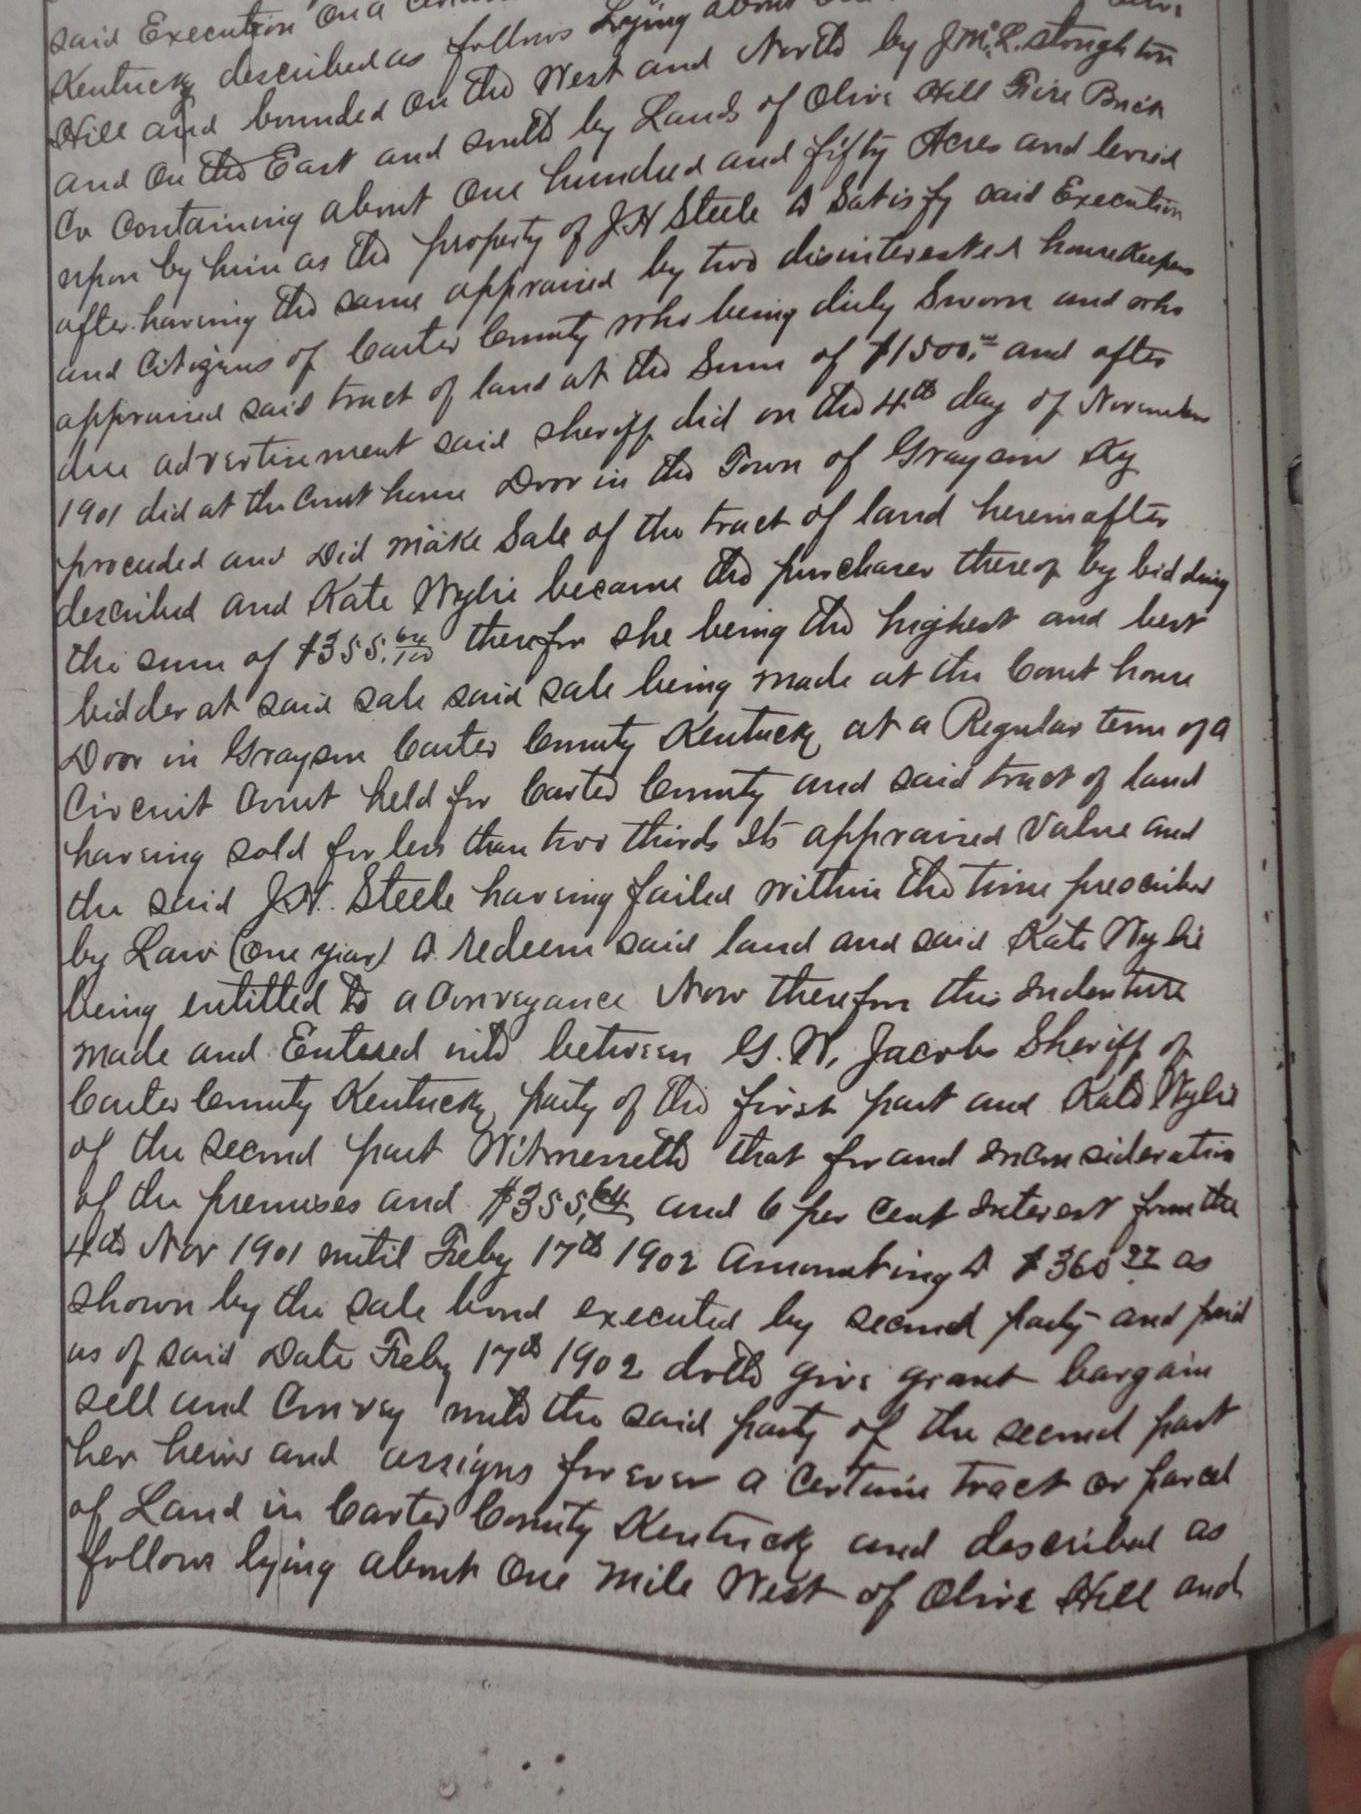 said Execution on a
Kentucky described as follows Lying about
Hill and bounded on the West and North by J.Mc.L. Stoughton
and on the East and south by Lands of Olive Hill Fire Brick
Co containing about one hundred and fifty Acres and levied
upon by him as the property of J.H Steele to Satisfy said Execution
after having the same appraised by two disinterested housekeepers
and Citizens of Carter County who being duly Sworn and who
appraised said tract of land at the Sum of $1500.00 and after
due advertisement said sheriff did on the 4th day of November
1901 did at the Court house Door in the Town of Grayson Ky
proceeded and Did make Sale of the tract of land hereinafter
described and Kate Wylie became the purchaser thereof by bidding
the sum of $355.64/100 therefor she being the highest and best
bidder at said sale said sale being made at the Court house
Door in Grayson Carter County Kentucky at a Regular term of a
Circuit Court held for Carter County and said tract of land
having sold for less than two thirds Its appraised Value and
the said J.H. Steele having failed within the time prescribed
by Law (one year) to redeem said land and said Kate Wylie
being entitled to a Conveyance Now therefor this Indenture
made and Entered into between G.W. Jacobs Sheriff of
Carter County Kentucky party of the first part and Kate Wylie
of the second part Witnesseth that for and Inconsideration
of the premises and $355.64 and 6 per cent Interest from the
4th Nov 1901 until Feby 17th 1902 Amounting to $360 as
shown by the sale bond executed by second party and paid
as of said Date Feby 17th 1902 doth give grant bargain
sell and Convey unto the said party of the second part
her heirs and assigns forever a Certain tract or parcel
of Land in Carter County Kentucky and described as
follows lying about One Mile West of Olive Hill and